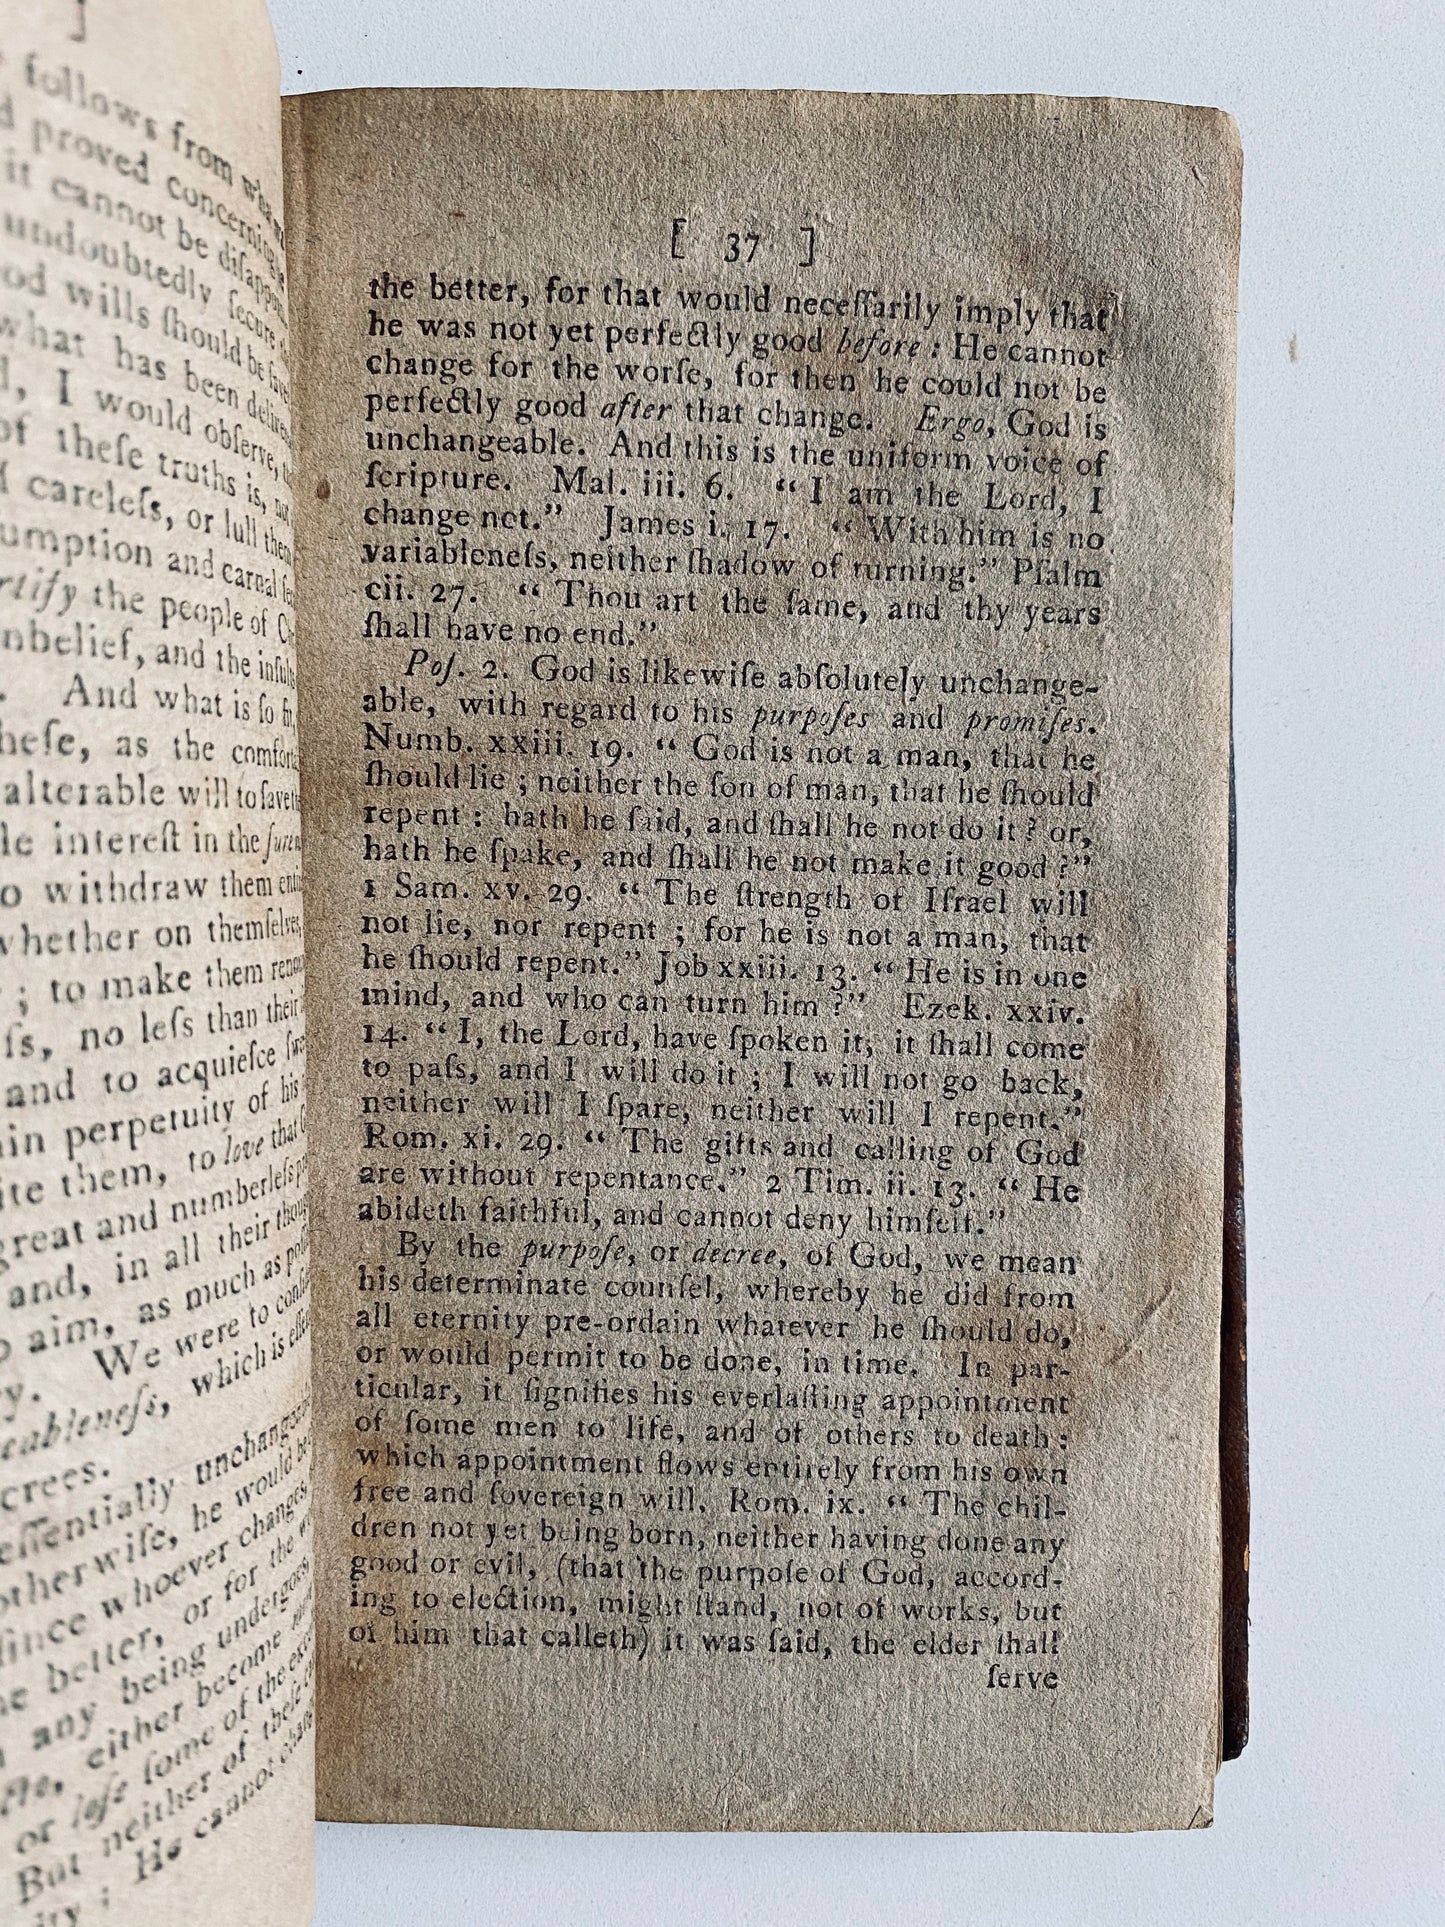 ]
follows from what
proved concerning
it cannot be disappoin
undoubtedly secure
wills ſhould be
what has been
I would obſerve,
of theſe truths is, not
careleſs, or lull them
umption and carnal
the people of
nbelief, and the
And what is ſo
heſe, as the
alterable will to ſave
intereſt in the
withdraw them
whether on themſelves,
; to make them
no leſs than their
and to acquieſce
perpetuity of his
them, to love that
great and numberleſs
and, in all their
aim, as much as
We were to
which is
crees.
eſſentially
otherwiſe, he would be
ſince whoever changes,
better, or for the
any being undergoes,
either become
or loſe ſome of the
But neither of theſe
He cannot
[ 37 ]
the better, for that would neceſſarily imply that
he was not yet perfectly good before : He cannot
change for the worſe, for then he could not be
perfectly good after that change. Ergo, God is
unchangeable. And this is the uniform voice of
ſcripture. Mal. iii. 6. “ I am the Lord, I
change not.” James i. 17. “ With him is no
variableneſs, neither ſhadow of turning.” Pſalm
cii. 27. “ Thou art the ſame, and thy years
ſhall have no end.”
Poſ. 2. God is likewiſe abſolutely unchange-
able, with regard to his purpoſes and promiſes.
Numb. xxiii. 19. “ God is not a man, that he
ſhould lie ; neither the ſon of man, that he ſhould
repent : hath he ſaid, and ſhall he not do it ? or,
hath he ſpake, and ſhall he not make it good ?”
1 Sam. xv. 29. “ The ſtrength of Iſrael will
not lie, nor repent ; for he is not a man, that
he ſhould repent.” Job xxiii. 13. “ He is in one
mind, and who can turn him ?” Ezek. xxiv.
14. “ I, the Lord, have ſpoken it, it ſhall come
to paſs, and I will do it ; I will not go back,
neither will I ſpare, neither will I repent.”
Rom. xi. 29. “ The gifts and calling of God
are without repentance.” 2 Tim. ii. 13. “ He
abideth faithful, and cannot deny himſelf.”
By the purpoſe, or decree, of God, we mean
his determinate counſel, whereby he did from
all eternity pre-ordain whatever he ſhould do,
or would permit to be done, in time. In par-
ticular, it ſignifies his everlaſting appointment
of ſome men to life, and of others to death :
which appointment flows entirely from his own
free and ſovereign will. Rom. ix. “ The chil-
dren not yet being born, neither having done any
good or evil, (that the purpoſe of God, accord-
ing to election, might ſtand, not of works, but
of him that calleth) it was ſaid, the elder ſhall
ſerve